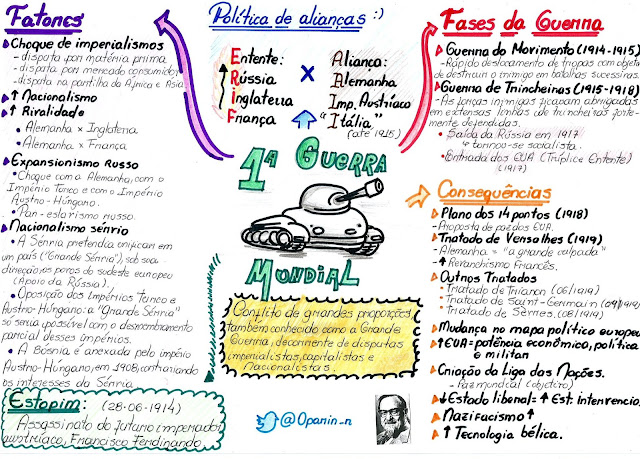 Fatores
Choque de imperialismos
- disputa por matéria prima.
- disputa por mercado consumidor
- disputa na partilha da África e Ásia
↑ Nacionalismo
↑ Rivalidade
• Alemanha x Inglaterra
• Alemanha x França
Expansionismo Russo
• Choque com a Alemanha, com o
Império Turco e com o Império
Austro-Húngaro.
• Pan-eslavismo russo.
Nacionalismo sérvio
• A Sérvia pretendia unificar em
um país ("Grande Sérvia"), sob sua
direção, os povos do sudeste europeu
(Apoio da Rússia).
• Oposição dos Impérios Turco e
Austro-Húngaro: a "Grande Sérvia"
só seria possível com o desmembramento
parcial desses impérios.
• A Bósnia é anexada pelo império
Austro-Húngaro, em 1908, contrariando
os interesses da Sérvia.
Estopim: (28-06-1914)
Assassinato do futuro imperador
austríaco, Francisco Ferdinando.
Política de alianças :)
Entente:
Rússia
Inglaterra
França
E
R
I
F
X
Aliança:
Alemanha
Imp. Austríaco
"Itália"
(até 1915)
1ª Guerra
Mundial
Conflito de grandes proporções,
também conhecido como a Grande
Guerra, decorrente de disputas
imperialistas, capitalistas e
Nacionalistas.
@Oparin_n
Fases da Guerra
Guerra do Movimento (1914-1915)
- Rápido deslocamento de tropas com objetivo
de destruir o inimigo em batalhas sucessivas.
Guerra de Trincheiras (1915-1918)
- As forças inimigas ficavam abrigadas
em extensas linhas de trincheiras forte-
mente defendidas.
• Saída da Rússia em 1917
tornou-se socialista.
• Entrada dos EUA (Tríplice Entente)
(1917)
Consequências
Plano dos 14 pontos (1918)
- Proposta de paz dos EUA.
Tratado de Versalhes (1919)
- Alemanha = "a grande culpada"
- ↑ Revanchismo Francês.
Outros Tratados
Tratado de Trianon (06/1919)
Tratado de Saint-Germain (09/1919)
Tratado de Sèvres (08/1919)
Mudança no mapa político europeu
↑ EUA = potência econômica, política
e militar
Criação da Liga das Nações.
- Paz mundial (objetivo)
↓ Estado liberal = ↑ Est. intervencio.
Nazifascismo ↑
↑ Tecnologia bélica.